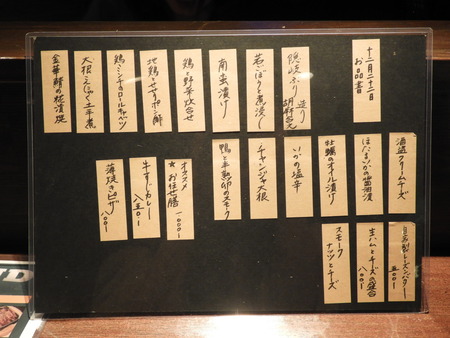 十二月二十二日
お品書
隠岐ぶり 造り
胡麻和え
若ごぼうと煮浸し
南蛮漬け
鶏と野菜炊合せ
地鶏とせせりポン酢
鶏ミンチのロールキャベツ
大根こんにゃく土手煮
金華鯖の松前焼
酒盗クリームチーズ
ほたるいかの醤油漬
牡蠣のオイル漬け
いかの塩辛
チャンジャ大根
鴨と半熟卵のスモーク
オススメ
★お任せ膳
一〇〇〇ー
牛すじカレー
八五〇ー
薄焼きピザ
一〇〇〇ー
自家製レーズンバター
五〇〇ー
生ハムとチーズの盛合
八〇〇ー
スモーク
ナッツとチーズ